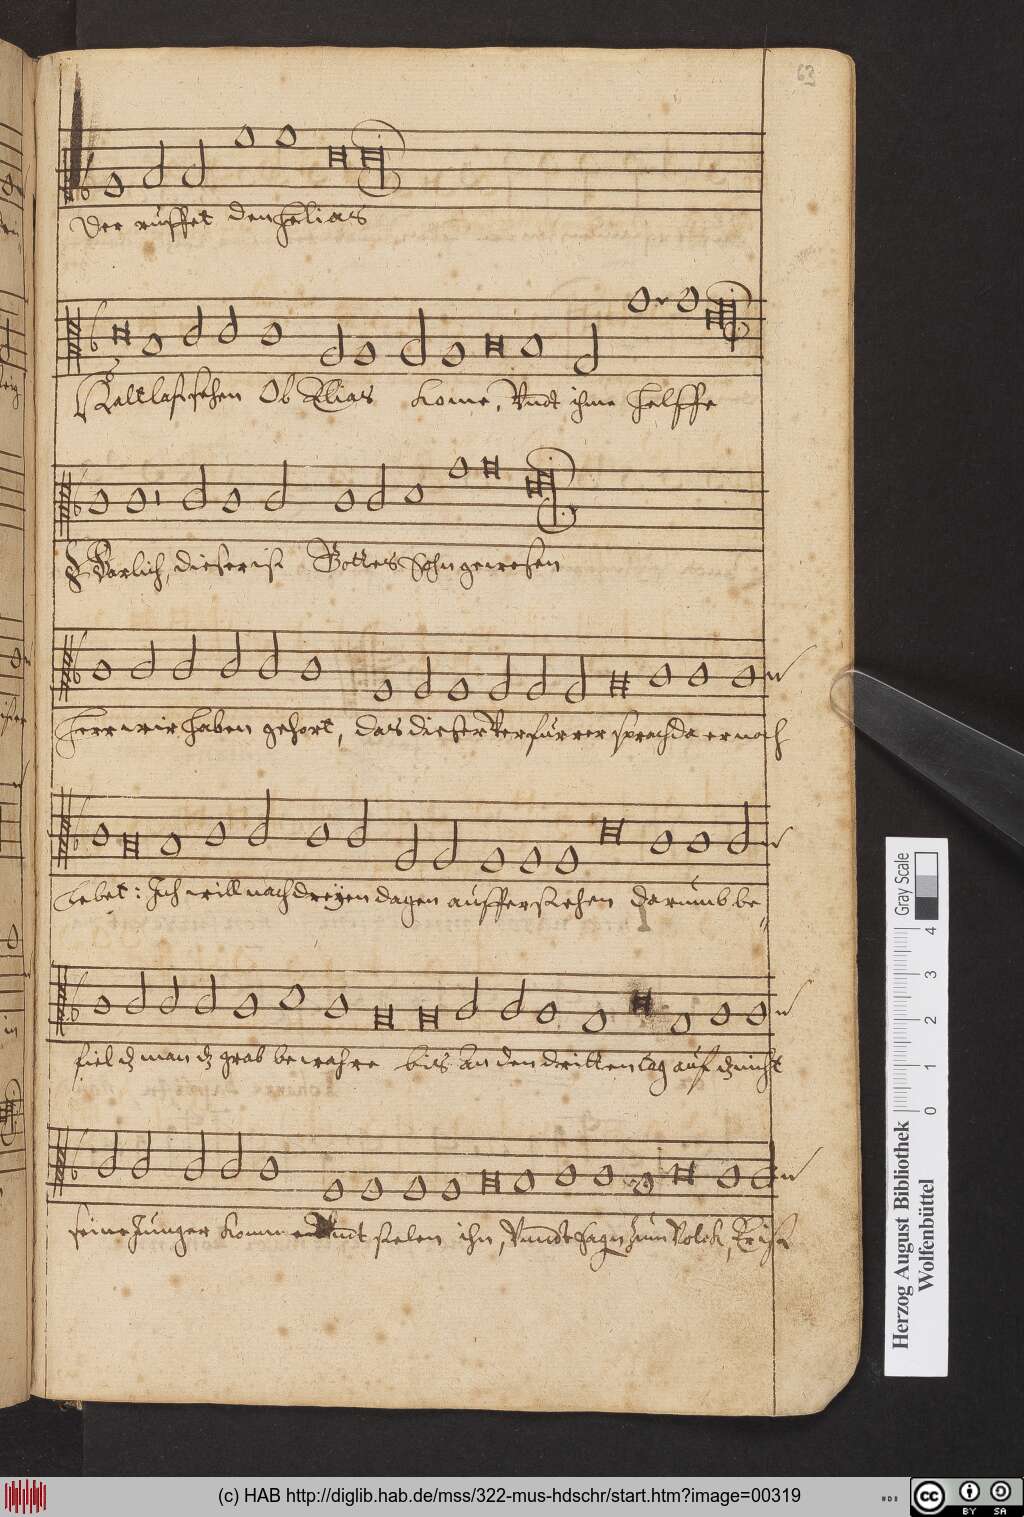 63
Der ruffet den Helias
Halt last sehen Ob Elias kome, Vndt ihme helffe
Warlich, dieser ist Gottes Sohn gewesen
Herr wir haben gehort, das dieser Verfürrer sprach da er noch
lebet: Ich will nach dreÿen dagen aufferstehen darümb be„
fiel dz man dz grab bewahre bis an den dritten tag auf dz nicht
seine Jünger kommen Vndt stelen ihn, Vnndt sagn Züm Volck, Er ist
Gray Scale
4
3
2
1
0
Herzog August Bibliothek
Wolfenbüttel
(c) HAB http://diglib.hab.de/mss/322-mus-hdschr/start.htm?image=00319
cc
BY SA